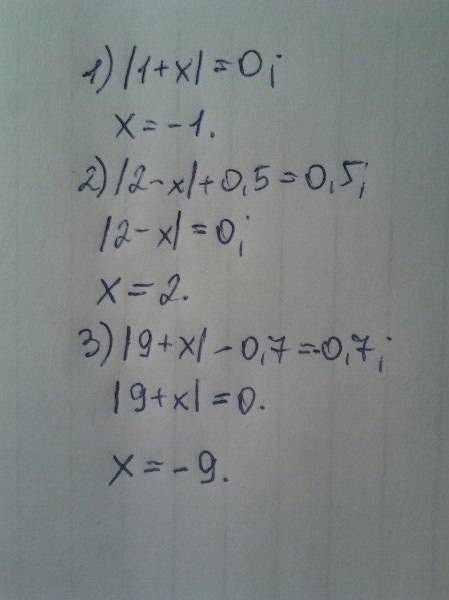 1) |1+x| = 0;
x = -1.
2) |2-x|+0,5=0,5;
|2-x| = 0;
x = 2.
3) |9+x| - 0,7 = -0,7;
|9+x| = 0.
x = -9.